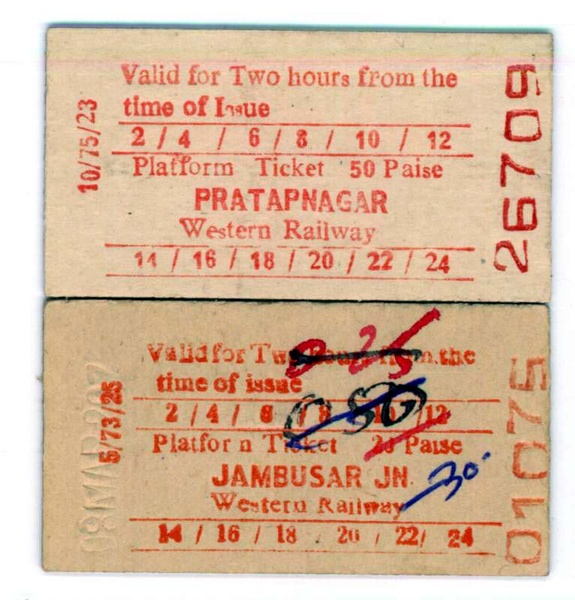 Valid for Two hours from the
time of Issue
2 / 4 / 6 / 8 / 10 / 12
Platform Ticket 50 Paise
PRATAPNAGAR
Western Railway
14 / 16 / 18 / 20 / 22 / 24
10/75/23
26709
Valid for Two hours from the
time of issue
2 / 4 / 6 / 8 / 10 / 12
Platfor n Ticket 20 Paise
JAMBUSAR JN
Western Railway
14 / 16 / 18 20 / 22/ 24
5/73/25
01075
0 25
30